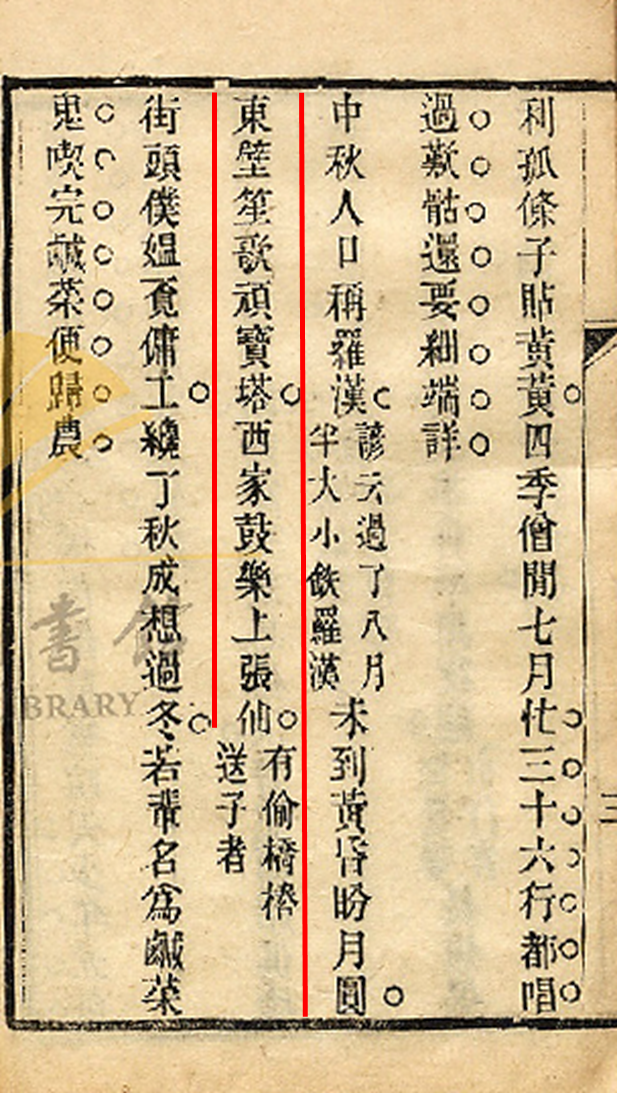 利孤條子貼黃黃四季僧閒七月忙三十六行都唱
過歎骷還要細端詳
中秋人口稱羅漢諺云過了八月半大小鉄羅漢未到黃昏盼月圓
東壁笙歌頑寶塔西家鼓樂上張仙有偷橋樁送子者
街頭僕媪覓傭工纔了秋成想過冬若輩名爲鹹菜
鬼喫完鹹菜便歸農
三
書館
BRARY